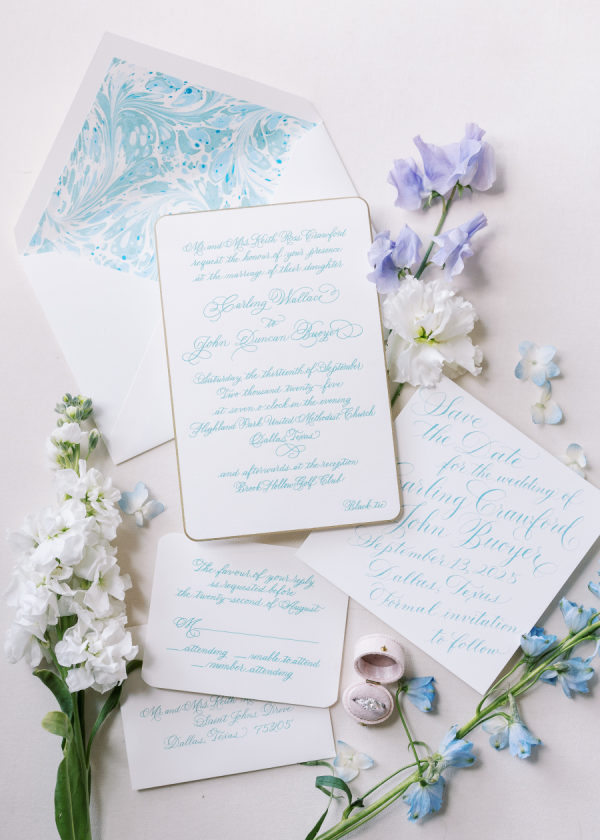 Mr. and Mrs. Keith Ross Crawford
request the honour of your presence
at the marriage of their daughter
Carling Wallace
to
John Duncan Buoyer
Saturday the thirteenth of September
Two thousand twenty-five
at seven o'clock in the evening
Highland Park United Methodist Church
Dallas, Texas
and afterwards at the reception
Brook Hollow Golf Club
Black tie
Save
the Date
for the wedding of
Carling Crawford
John Buoyer
September 13, 2025
Dallas, Texas
Formal invitation
to follow
The favour of your reply
is requested before
the twenty-second of August
M
attending unable to attend
number attending
Mr. and Mrs. Keith Ross
Saint Johns Drive
Dallas, Texas 75205